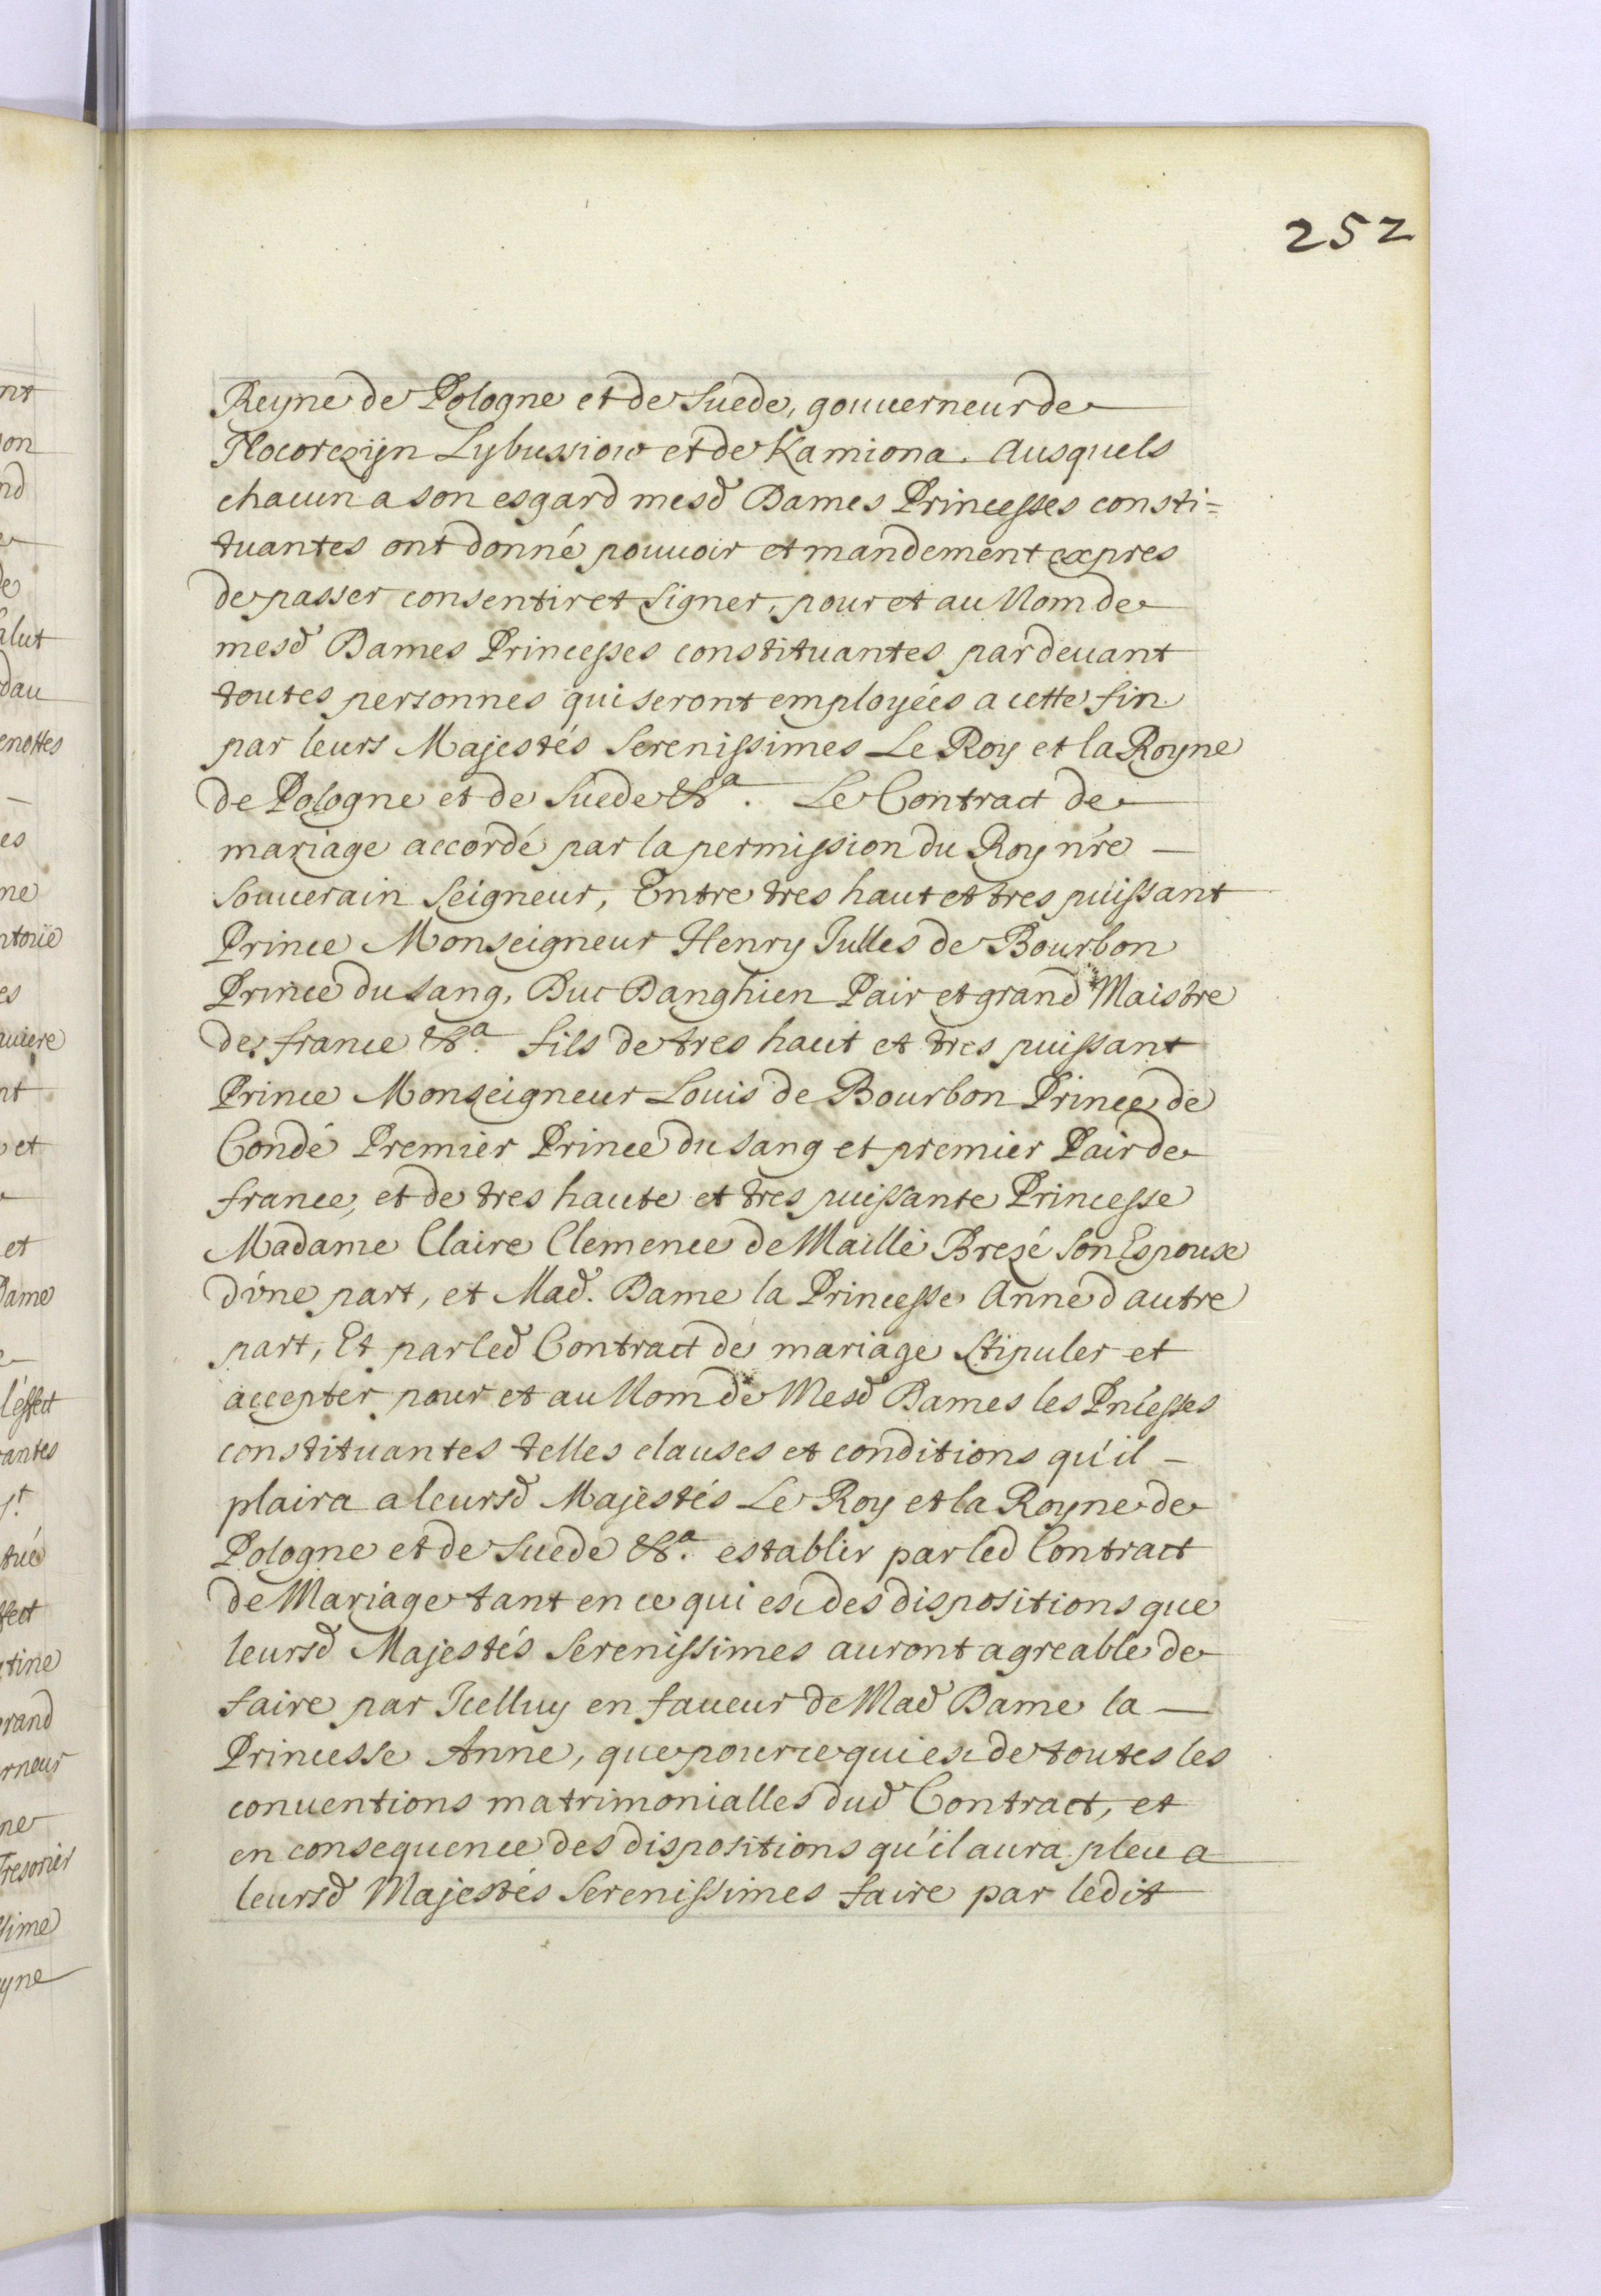 252
Reyne de Pologne et de Suede, gouuerneur de
Lybussiow et de Kamiona. Ausquels
chacun a son esgard mesd Dames Princesses consti=
tuantes ont donné pouuoir et mandement expres
de passer consentir et signer, pour et au Nom de
mesd Dames Princesses constituantes pardeuant
toutes personnes qui seront employées a cette fin
par leurs Majestés Serenissimes Le Roy et la Royne
de Pologne et de Suede &a. Le Contract de
mariage accordé par la permission du Roy nre
Souuerain Seigneur, Entre tres haut et tres puissant
Prince Monseigneur Henry Julles de Bourbon
Prince du sang, Duc Danghien Pair et grand Maistre
de france &a. fils de tres haut et tres puissant
Prince Monseigneur Louis de Bourbon Prince de
Condé Premier Prince du sang et premier Pair de
france, et de tres haute et tres puissante Princesse
Madame Claire Clemence de Maillé Brezé son Espouse
d'vne part, et Mad. Dame la Princesse Anne d'autre
part, Et par led Contract de mariage Stipuler et
accepter pour et au Nom de Mesd Dames les Pncesses
constituantes telles clauses et conditions qu'il
plaira a leursd Majestés Le Roy et la Royne de
Pologne et de Suede &a. establir par led Contract
de Mariage tant en ce qui est des dispositions que
leursd Majestés Serenissimes auront agreable de
faire par Icelluy en faueur de Mad Dame la
Princesse Anne, que pour ce qui est de toutes les
conuentions matrimonialles dud Contract, et
en consequence des dispositions qu'il aura pleu a
leursd Majestés Serenissimes faire par ledit